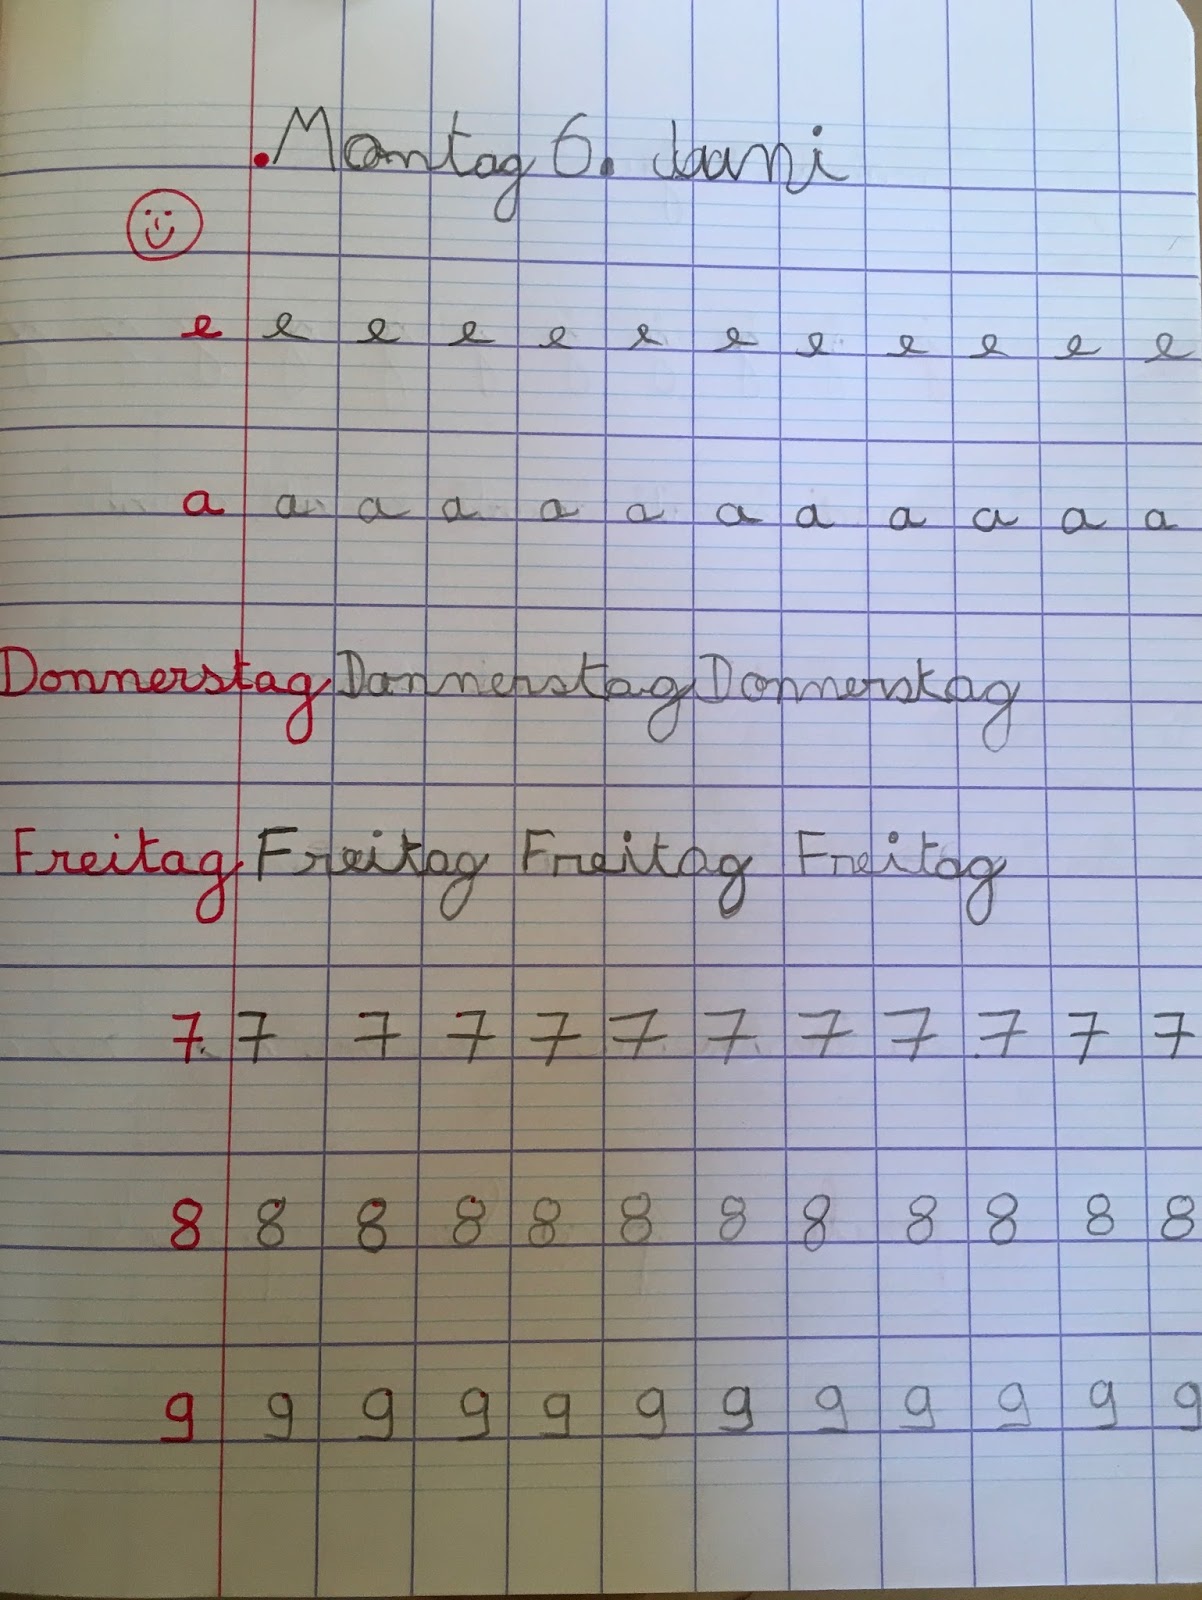 .Montag 6. Jaani
e e e e e e e e e e e e
a a a a a a a a a a a a
Donnerstag Donnerstag Donnerstag
Freitag Freitag Freitag Freitag
7 7 7 7 7 7 7 7 7 7 7 7
8 8 8 8 8 8 8 8 8 8 8 8
9 9 9 9 9 9 9 9 9 9 9 9